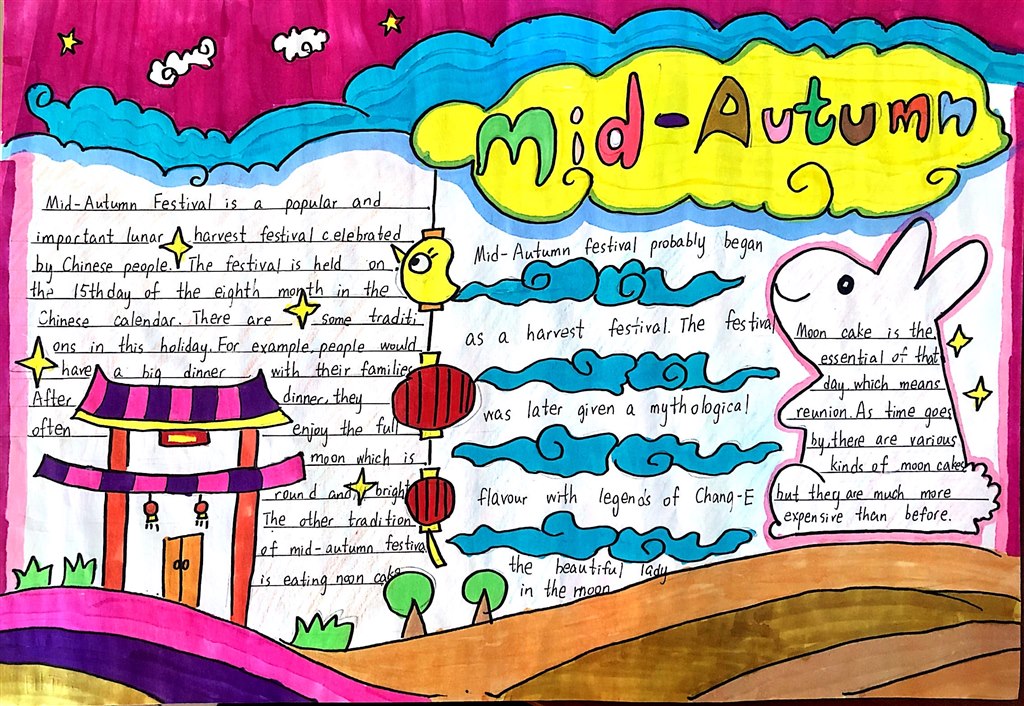 Mid-Autumn
Mid-Autumn Festival is a popular and
important lunar harvest festival celebrated
by Chinese people. The festival is held on
the 15th day of the eighth month in the
Chinese calendar. There are some traditi
ons in this holiday. For example, people would
have a big dinner with their families
After dinner, they
often enjoy the full
moon which is
round and bright
The other tradition
of mid-autumn festival
is eating noon cake
Mid-Autumn festival probably began
as a harvest festival. The festival
was later given a mythological
flavour with legends of Chang-E
the beautiful lady
in the moon
Moon cake is the
essential of that
day which means
reunion. As time goes
by, there are various
kinds of moon cakes
but they are much more
expensive than before.